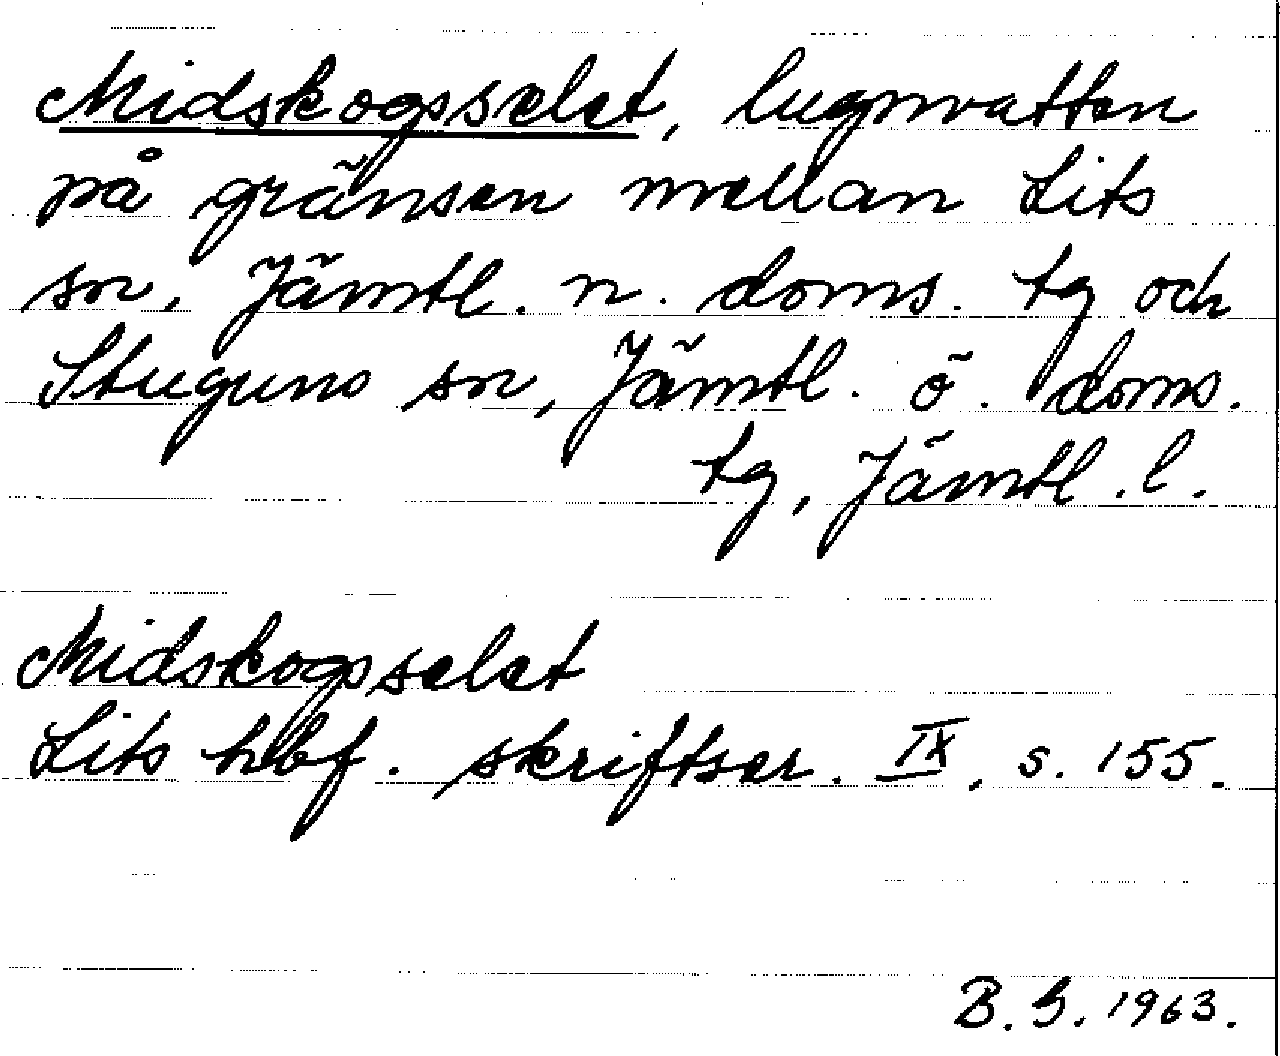 Midskogsselet, lugnvatten
på gränsen mellan Lits
sn, Jämtl. n. doms. tg och
Stuguns sn, Jämtl. ö. doms.
tg, Jämtl. l.
Midskogsselet
Lits hbf. skriftser. IX, s. 155.
B. G. 1963.